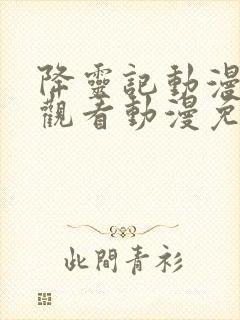 降靈記動漫
觀看動漫免
此間青衫